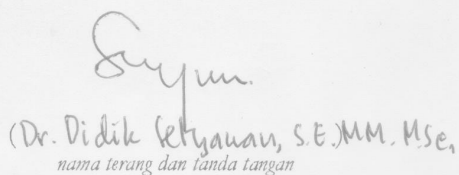 (Dr. Didik Setyawan, S.E.)MM. M.Sc,
nama terang dan tanda tangan